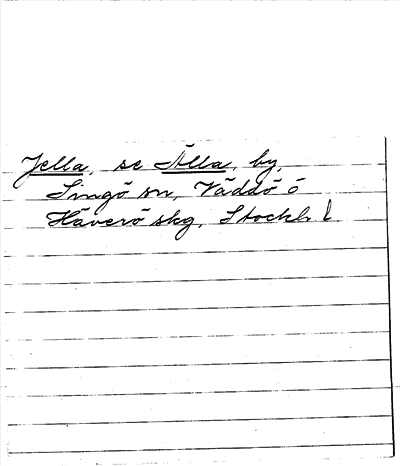 Jella, se Älla, by,
Singö sn, Väddö ö
Häverö skg, Stockh. l.